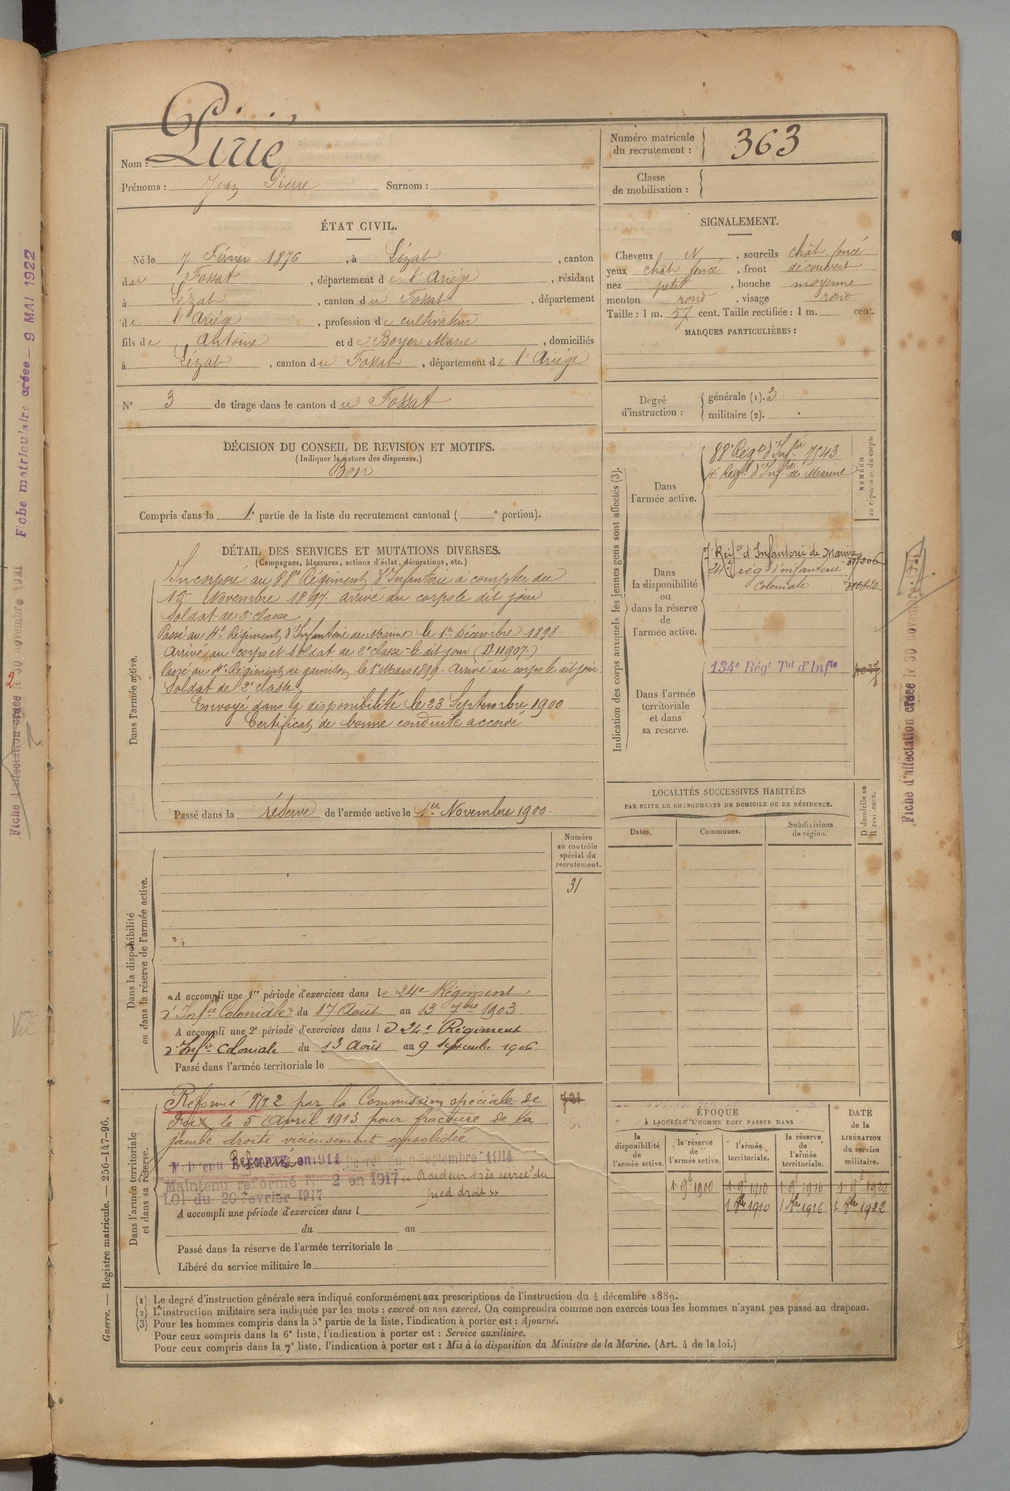 Nom : Pirié
Prénoms : Jean Pierre Surnom :
Numéro matricule du recrutement : 363
Classe de mobilisation :
ÉTAT CIVIL.
Né le 7 Février 1876, à Lézat, canton
du Fossat, département de l'Ariège, résidant
à Lézat, canton du Fossat, département
de l'Ariège, profession de cultivateur
fils de Antoine et de Boyer Marie, domiciliés
à Lézat, canton du Fossat, département de l'Ariège
N° 3 de tirage dans le canton du Fossat
SIGNALEMENT.
Cheveux N, sourcils chât foncé
yeux chât foncé, front découvert
nez petit, bouche moyenne
menton rond, visage rond
Taille : 1 m. 57 cent. Taille rectifiée : 1 m. cent.
MARQUES PARTICULIÈRES :
Degré d'instruction : générale (1). 3
militaire (2).
DÉCISION DU CONSEIL DE REVISION ET MOTIFS.
(Indiquer la nature des dispenses.)
Bon
Compris dans la 1e partie de la liste du recrutement cantonal ( e portion).
DÉTAIL DES SERVICES ET MUTATIONS DIVERSES.
(Campagnes, blessures, actions d'éclat, décorations, etc.)
Dans l'armée active.
Incorporé au 88e Régiment d'Infanterie à compter du
Novembre 1897. Arrivé au corps le dit jour
Soldat de 2e classe
Passé au 4e Régiment d'Infanterie de Marine le 1er Décembre 1898
Arrivé au corps et soldat de 2e classe le dit jour (D. 11907)
Passé au 8e Régiment de garnison le 1er Mars 1899. Arrivé au corps le dit jour
Soldat de 2e classe
Envoyé dans la disponibilité le 23 Septembre 1900
Certificat de bonne conduite accordé
Passé dans la réserve de l'armée active le 1er Novembre 1900
Indication des corps auxquels les jeunes gens sont affectés (3).
NUMÉRO
au répertoire du corps.
Dans l'armée active.
88e Régt d'Infie 7743
4e Régt d'Infie de Marine
Dans la disponibilité ou dans la réserve de l'armée active.
7e Regt d'Infanterie de Marine
24e rég d'infanterie
Coloniale
Dans l'armée territoriale et dans sa réserve.
134e Régt Tal d'Infie
LOCALITÉS SUCCESSIVES HABITÉES
PAR SUITE DE CHANGEMENTS DE DOMICILE OU DE RÉSIDENCE.
Dates.
Communes.
Subdivisions de région.
D domicile ou R résidence.
Dans la disponibilité ou dans la réserve de l'armée active.
Numéro au contrôle spécial du recrutement.
31
A accompli une 1re période d'exercices dans le 24e Régiment
d'Infie Coloniale du 17 Août au 13 7bre 1903
A accompli une 2e période d'exercices dans le 24e Régiment
d'Infie Coloniale du 13 Août au 9 Septembre 1906
Passé dans l'armée territoriale le
Dans l'armée territoriale et dans sa réserve.
Réformé No 2 par la Commission spéciale de
Foix le 5 Avril 1913 pour fracture de la
jambe droite vicieusement consolidée
Maintenu Réformé en 1914 septembre 1914
Maintenu réformé No 2 en 1917 « Raideur très serrée du
LOI du 20 février 1917 pied droit »
A accompli une période d'exercices dans l
du au
Passé dans la réserve de l'armée territoriale le
Libéré du service militaire le
ÉPOQUE
À LAQUELLE L'HOMME DOIT PASSER DANS
la disponibilité de l'armée active.
la réserve de l'armée active.
l'armée territoriale.
la réserve de l'armée territoriale.
DATE DE LA LIBÉRATION du service militaire.
1 9e 1900 1 9e 1910 1 9e 1916 1 9e 1922
1 8bre 1910 1 8bre 1916 1 8bre 1922
(1) Le degré d'instruction générale sera indiqué conformément aux prescriptions de l'instruction du 4 décembre 1889.
(2) L'instruction militaire sera indiquée par les mots : exercé ou non exercé. On comprendra comme non exercés tous les hommes n'ayant pas passé au drapeau.
(3) Pour les hommes compris dans la 5e partie de la liste, l'indication à porter est : Ajourné.
Pour ceux compris dans la 6e liste, l'indication à porter est : Service auxiliaire.
Pour ceux compris dans la 7e liste, l'indication à porter est : Mis à la disposition du Ministre de la Marine. (Art. 4 de la loi.)
Guerre. — Registre matricule. — 256-147-96.
Fiche matriculaire créée — 9 MAI 1922
Fiche d'affectation créée le 30 novembre
Fiche d'affectation créée le 30 novembre